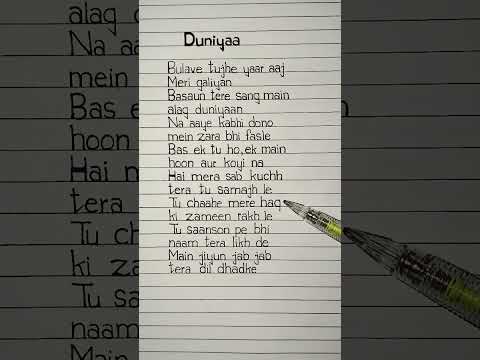 Duniyaa
Bulave tujhe yaar aaj
Meri galiyan
Basaun tere sang main
alag duniyaan
Na aaye kabhi dono
mein zara bhi fasle
Bas ek tu ho, ek main
hoon aur koyi na
Hai mera sab kuchh
tera tu samajh le
Tu chaahe mere haq
ki zameen rakh le
Tu saanson pe bhi
naam tera likh de
Main jiyun jab jab
tera dil dhadke